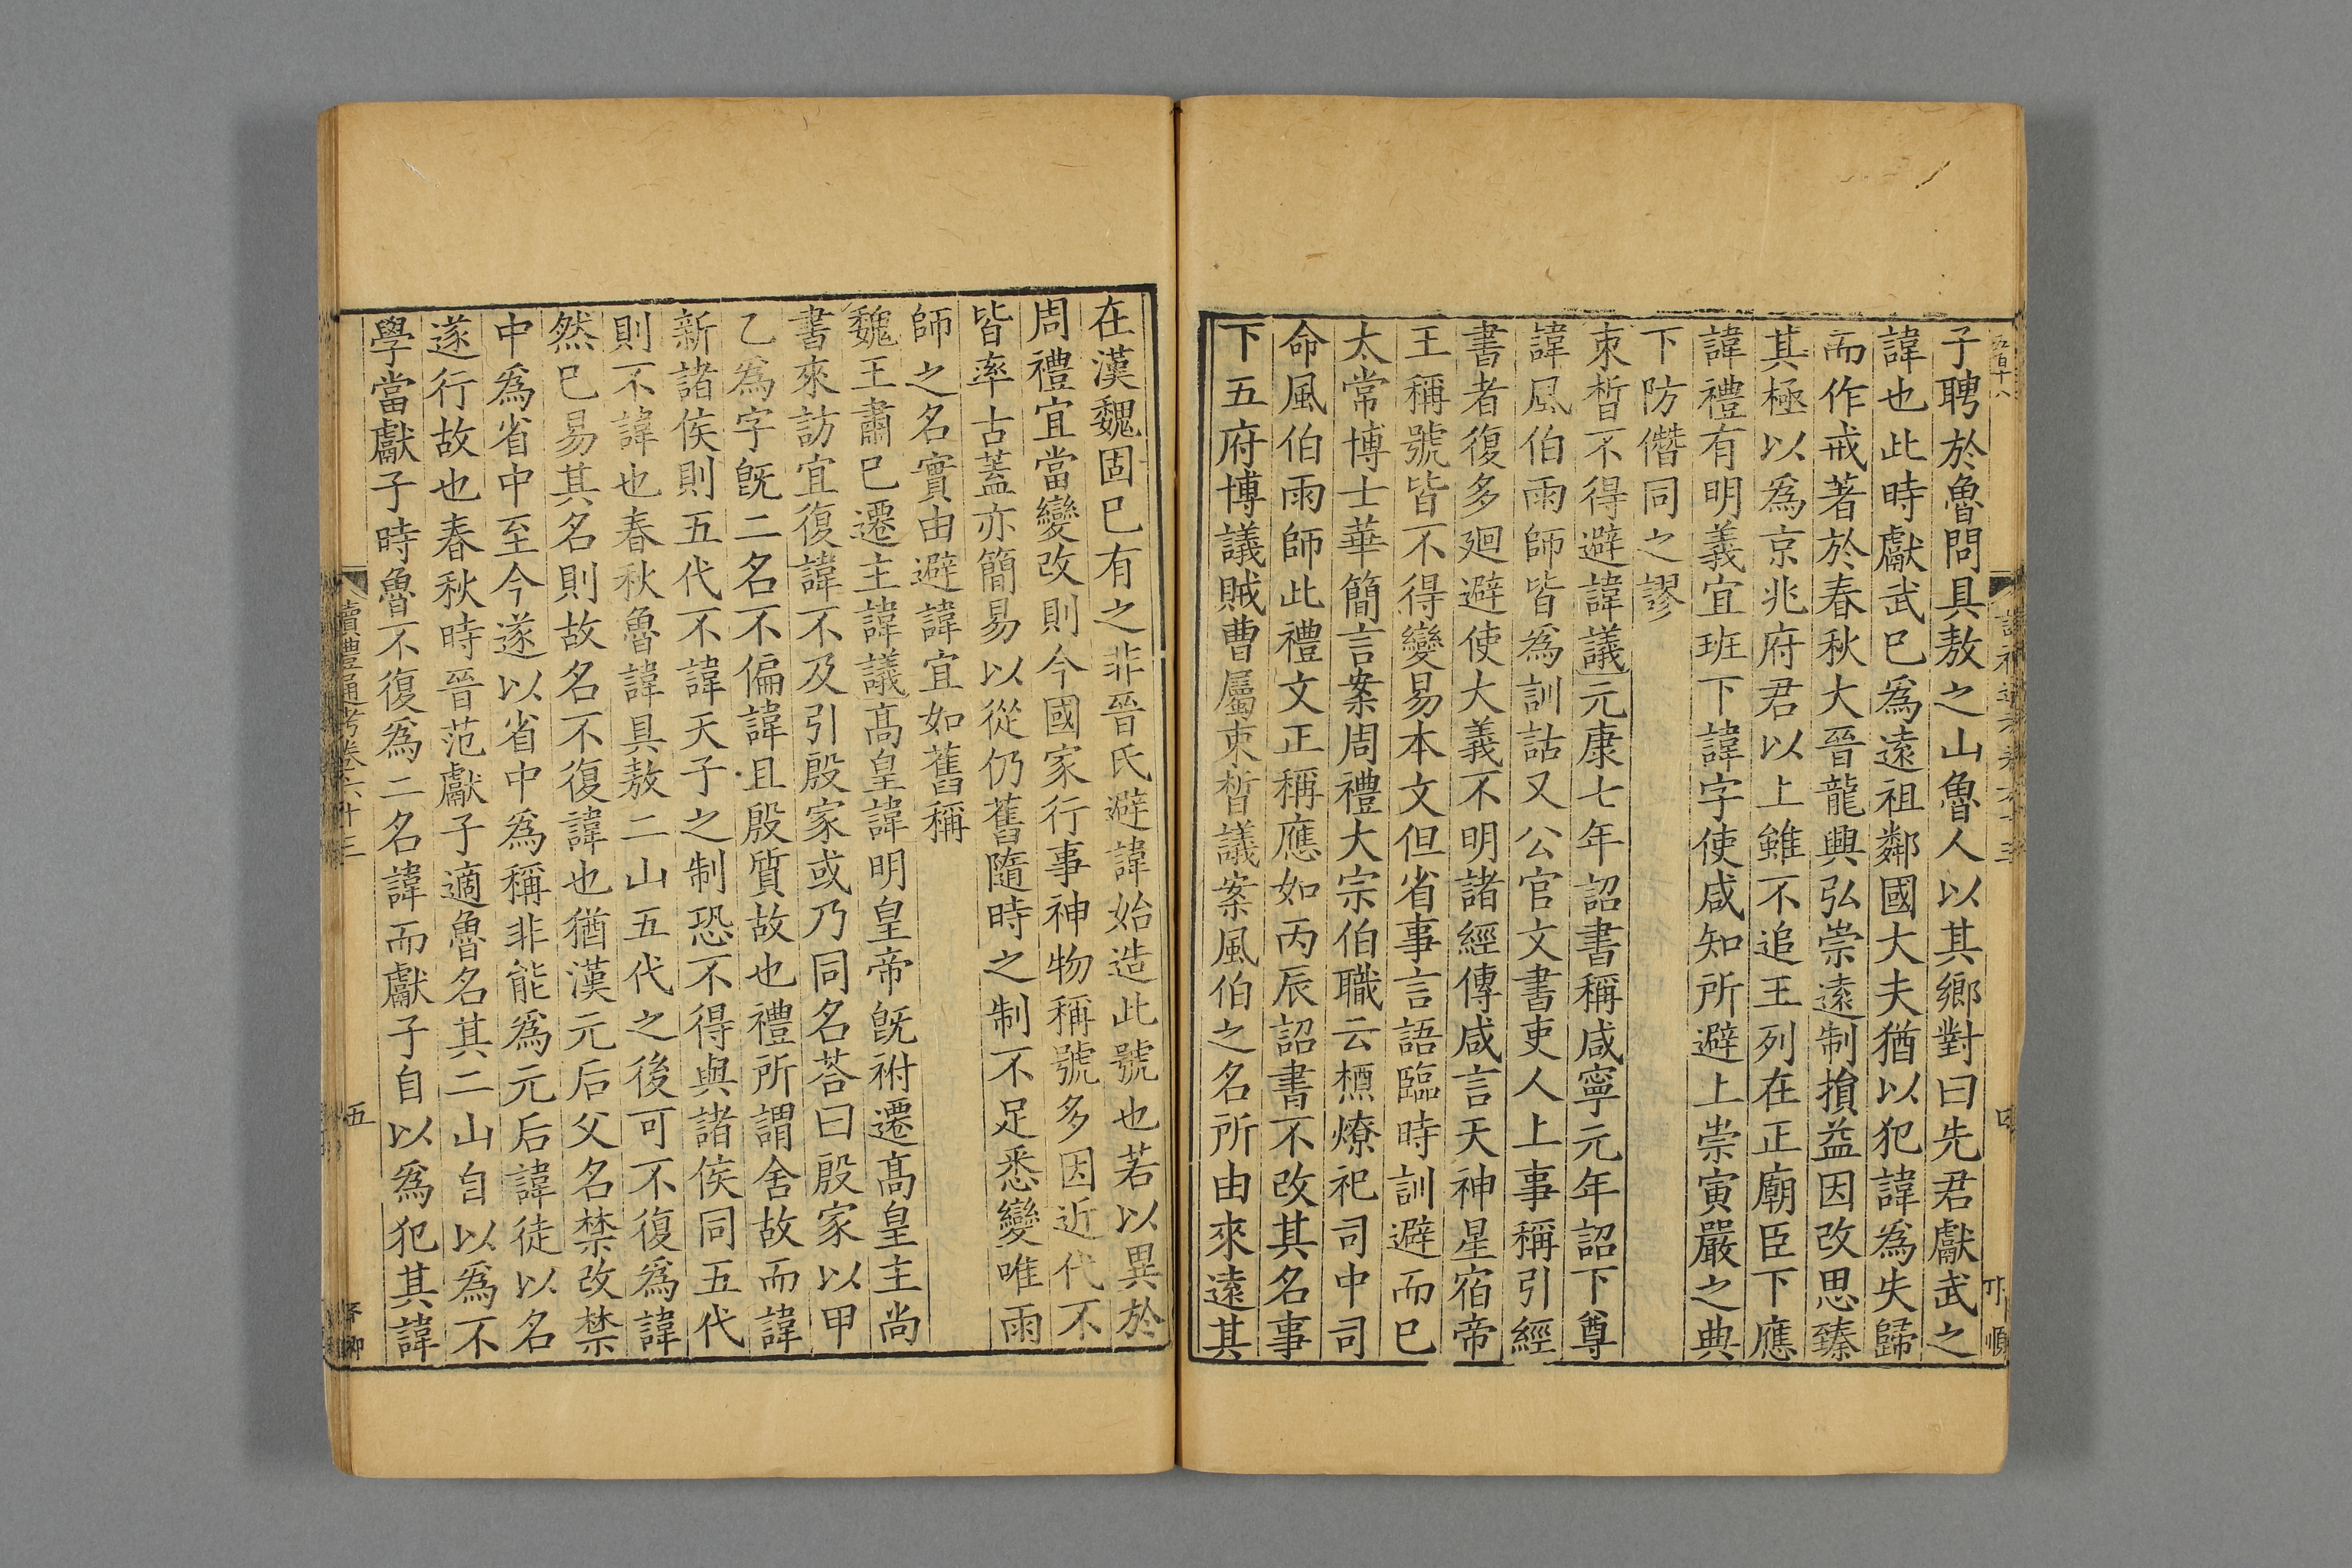 子聘於魯問具敖之山魯人以其鄉對曰先君獻武之
諱也此時獻武巳爲遠祖鄰國大夫猶以犯諱爲失歸
而作戒著於春秋大晉龍興弘崇遠制損益因改思臻
其極以爲京兆府君以上雖不追王列在正廟臣下應
諱禮有明義宜班下諱字使咸知所避上崇寅嚴之典
下防僭同之謬
束晳不得避諱議元康七年詔書稱咸寧元年詔下尊
諱風伯雨師皆爲訓詁又公官文書吏人上事稱引經
書者復多廻避使大義不明諸經傳咸言天神星宿帝
王稱號皆不得變易本文但省事言語臨時訓避而巳
太常博士華簡言案周禮大宗伯職云槱燎祀司中司
命風伯雨師此禮文正稱應如丙辰詔書不改其名事
下五府博議賊曹屬束晳議案風伯之名所由來遠其
在漢魏固巳有之非晉氏避諱始造此號也若以異於
周禮宜當變改則今國家行事神物稱號多因近代不
皆率古蓋亦簡易以從仍舊隨時之制不足悉變唯雨
師之名實由避諱宜如舊稱
魏王肅巳遷主諱議高皇諱明皇帝旣祔遷高皇主尚
書來訪宜復諱不及引殷家或乃同名荅曰殷家以甲
乙爲字旣二名不偏諱且殷質故也禮所謂舍故而諱
新諸侯則五代不諱天子之制恐不得與諸侯同五代
則不諱也春秋魯諱具敖二山五代之後可不復爲諱
然巳易其名則故名不復諱也猶漢元后父名禁改禁
中爲省中至今遂以省中爲稱非能爲元后諱徒以名
遂行故也春秋時晉范獻子適魯名其二山自以爲不
學當獻子時魯不復爲二名諱而獻子自以爲犯其諱
讀禮通考卷六十三
五